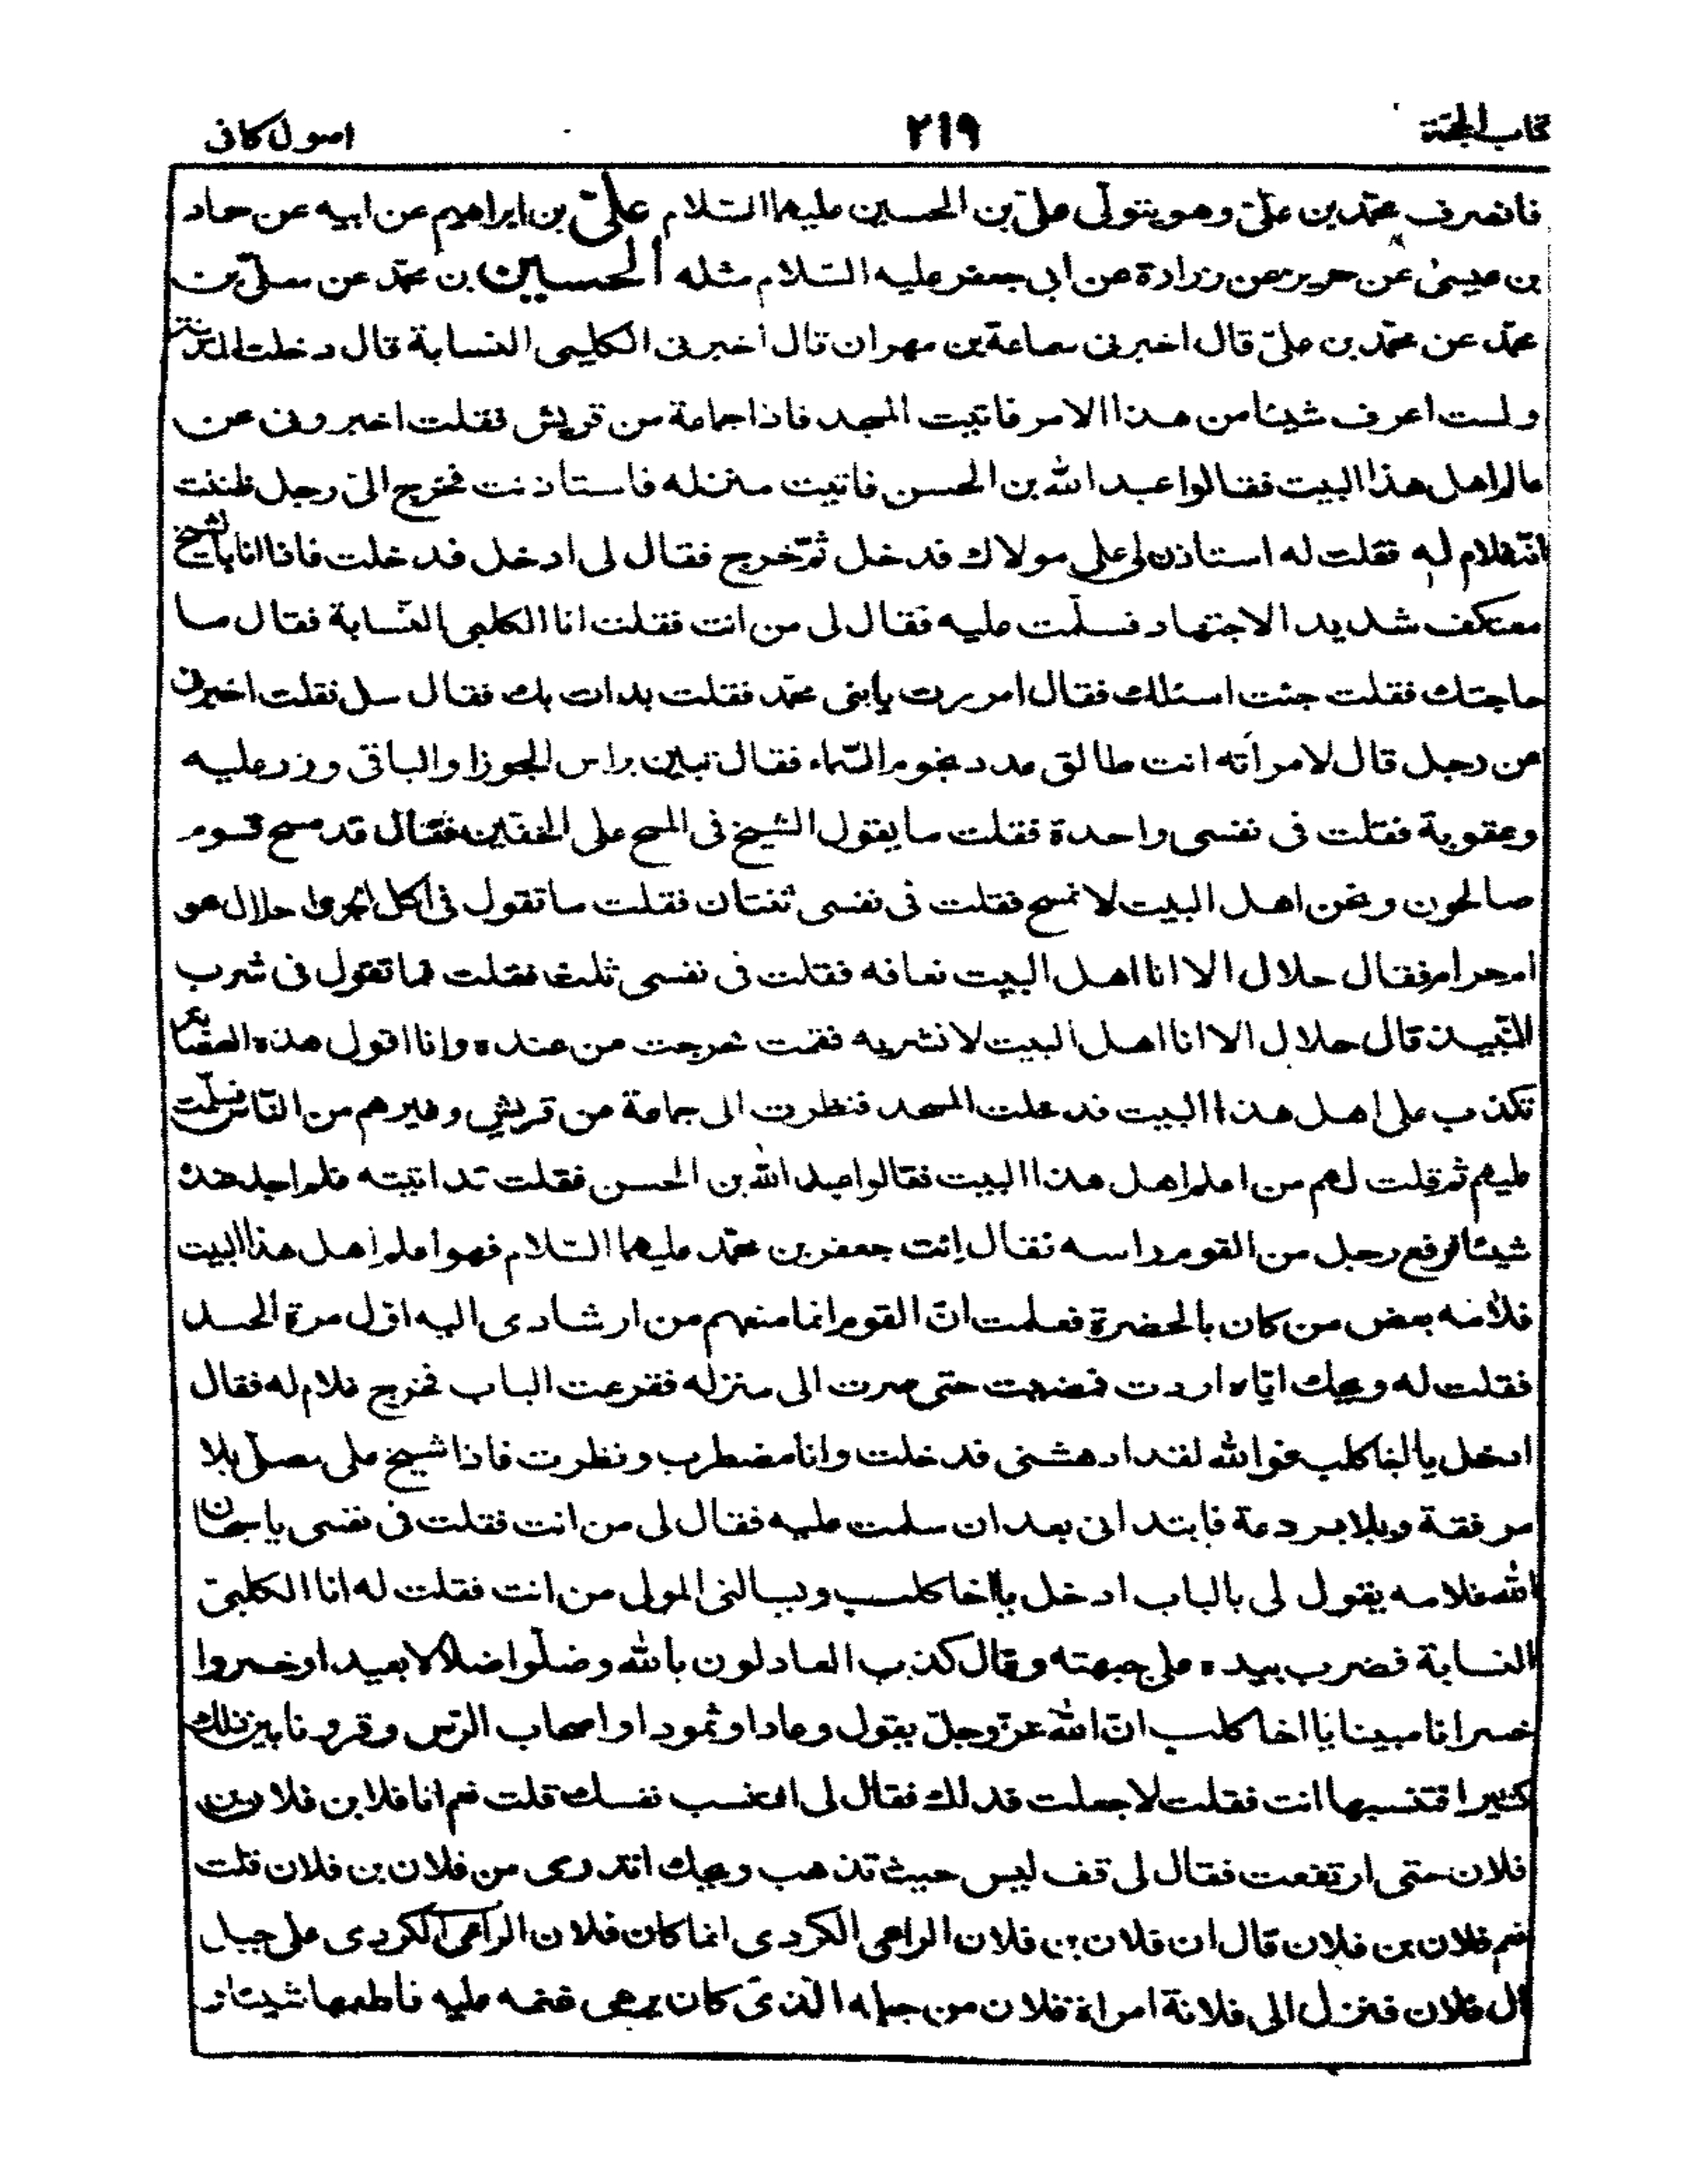 كتاب الحجة ٢١٩ اصول كافى
فانصرف محمّد بن علىّ وهو يتولّى علىّ بن الحسين عليهما السّلام علىّ بن ابراهيم عن ابيه عن حماد
بن عيسىٰ عن حريز عن زرارة عن ابى جعفر عليه السّلام مثله الحسين بن محمّد عن معلّى بن
محمّد عن محمّد بن علىّ قال اخبرنى سماعة بن مهران قال اخبرنى الكلبى النسابة قال دخلت المدينة
ولست اعرف شيئا من هذا الامر فاتيت المسجد فاذا جماعة من قريش فقلت اخبرونى عن
عالم اهل هذا البيت فقالوا عبد الله بن الحسن فاتيت منزله فاستاذنت فخرج الىّ رجل ظننت
انّه غلام له فقلت له استاذن لى على مولاك فدخل ثمّ خرج فقال لى ادخل فدخلت فاذا انا بشيخ
معتكف شديد الاجتهاد فسلّمت عليه فقال لى من انت فقلت انا الكلبى النّسابة فقال ما
حاجتك فقلت جئت اسئلك فقال امررت بابنى محمّد فقلت بدات بك فقال سل فقلت اخبرنى
عن رجل قال لامرأته انت طالق عدد نجوم السّماء فقال تبين براس الجوزا والباقى وزر عليه
وعقوبة فقلت فى نفسى واحدة فقلت ما يقول الشيخ فى المسح على الخفّين فقال قد مسح قوم
صالحون ونحن اهل البيت لا نمسح فقلت فى نفسى ثنتان فقلت ما تقول فى اكل الجرى احلال هو
ام حرام فقال حلال الا انا اهل البيت نعافه فقلت فى نفسى ثلث فقلت فما تقول فى شرب
النّبيذ قال حلال الا انا اهل البيت لا نشربه فقمت فخرجت من عنده وانا اقول هذه العصابة
تكذب على اهل هذا البيت فدخلت المسجد فنظرت الى جماعة من قريش وغيرهم من النّاس فسلّمت
عليهم ثم قلت لهم من اعلم اهل هذا البيت فقالوا عبد الله بن الحسن فقلت قد اتيته فلم اجد عنده
شيئا فرفع رجل من القوم راسه فقال إئت جعفر بن محمّد عليهما السّلام فهو اعلم اهل هذا البيت
فلامه بعض من كان بالحضرة فعلمت انّ القوم انما منعهم من ارشادى اليه اوّل مرة الحسد
فقلت له ويحك ايّاه اردت فمضيت حتى صرت الى منزله فقرعت الباب فخرج غلام له فقال
ادخل يا اخا كلب فوالله لقد ادهشنى فدخلت وانا مضطرب ونظرت فاذا شيخ على مصلّى بلا
مرفقة وبلا بردعة فابتدانى بعد ان سلمت عليه فقال لى من انت فقلت فى نفسى يا سبحان
الله غلامه يقول لى بالباب ادخل يا اخا كلب ويسالنى المولى من انت فقلت له انا الكلبىّ
النسابة فضرب بيده على جبهته وقال كذب العادلون بالله وضلّوا ضلالا بعيدا وخسروا
خسرانا مبينا يا اخا كلب انّ الله عزّ وجلّ يقول وعادا وثمودا واصحاب الرّس وقرونا بين ذلك
كثيرا افتنسبها انت فقلت لا جعلت فداك فقال لى افتنسب نفسك قلت نعم انا فلان بن فلان بن
فلان حتى ارتفعت فقال لى قف ليس حيث تذهب ويحك اتدرى من فلان بن فلان قلت
نعم فلان بن فلان قال ان فلان بن فلان الراعى الكردى انما كان فلان الراعى الكردى على جبل
ال فلان فنزل الى فلانة امراة فلان من جبله الّذى كان يرعى غنمه عليه فاطعمها شيئا و